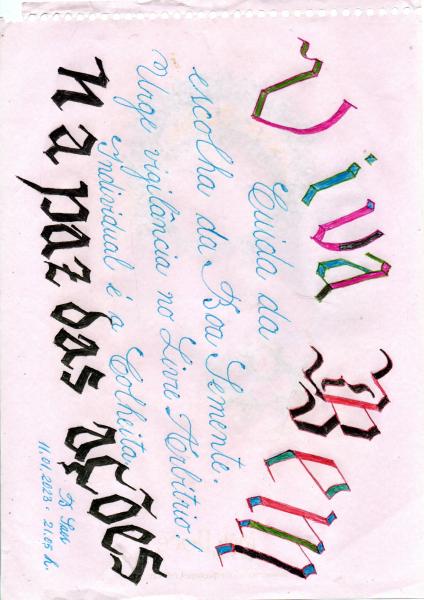 Viva Bem
Cuida da
escolha da Boa Semente.
Urge vigilância no Livre Arbítrio!
Individual é a Colheita
na paz das ações
11.01.2023 - 21.05 h.